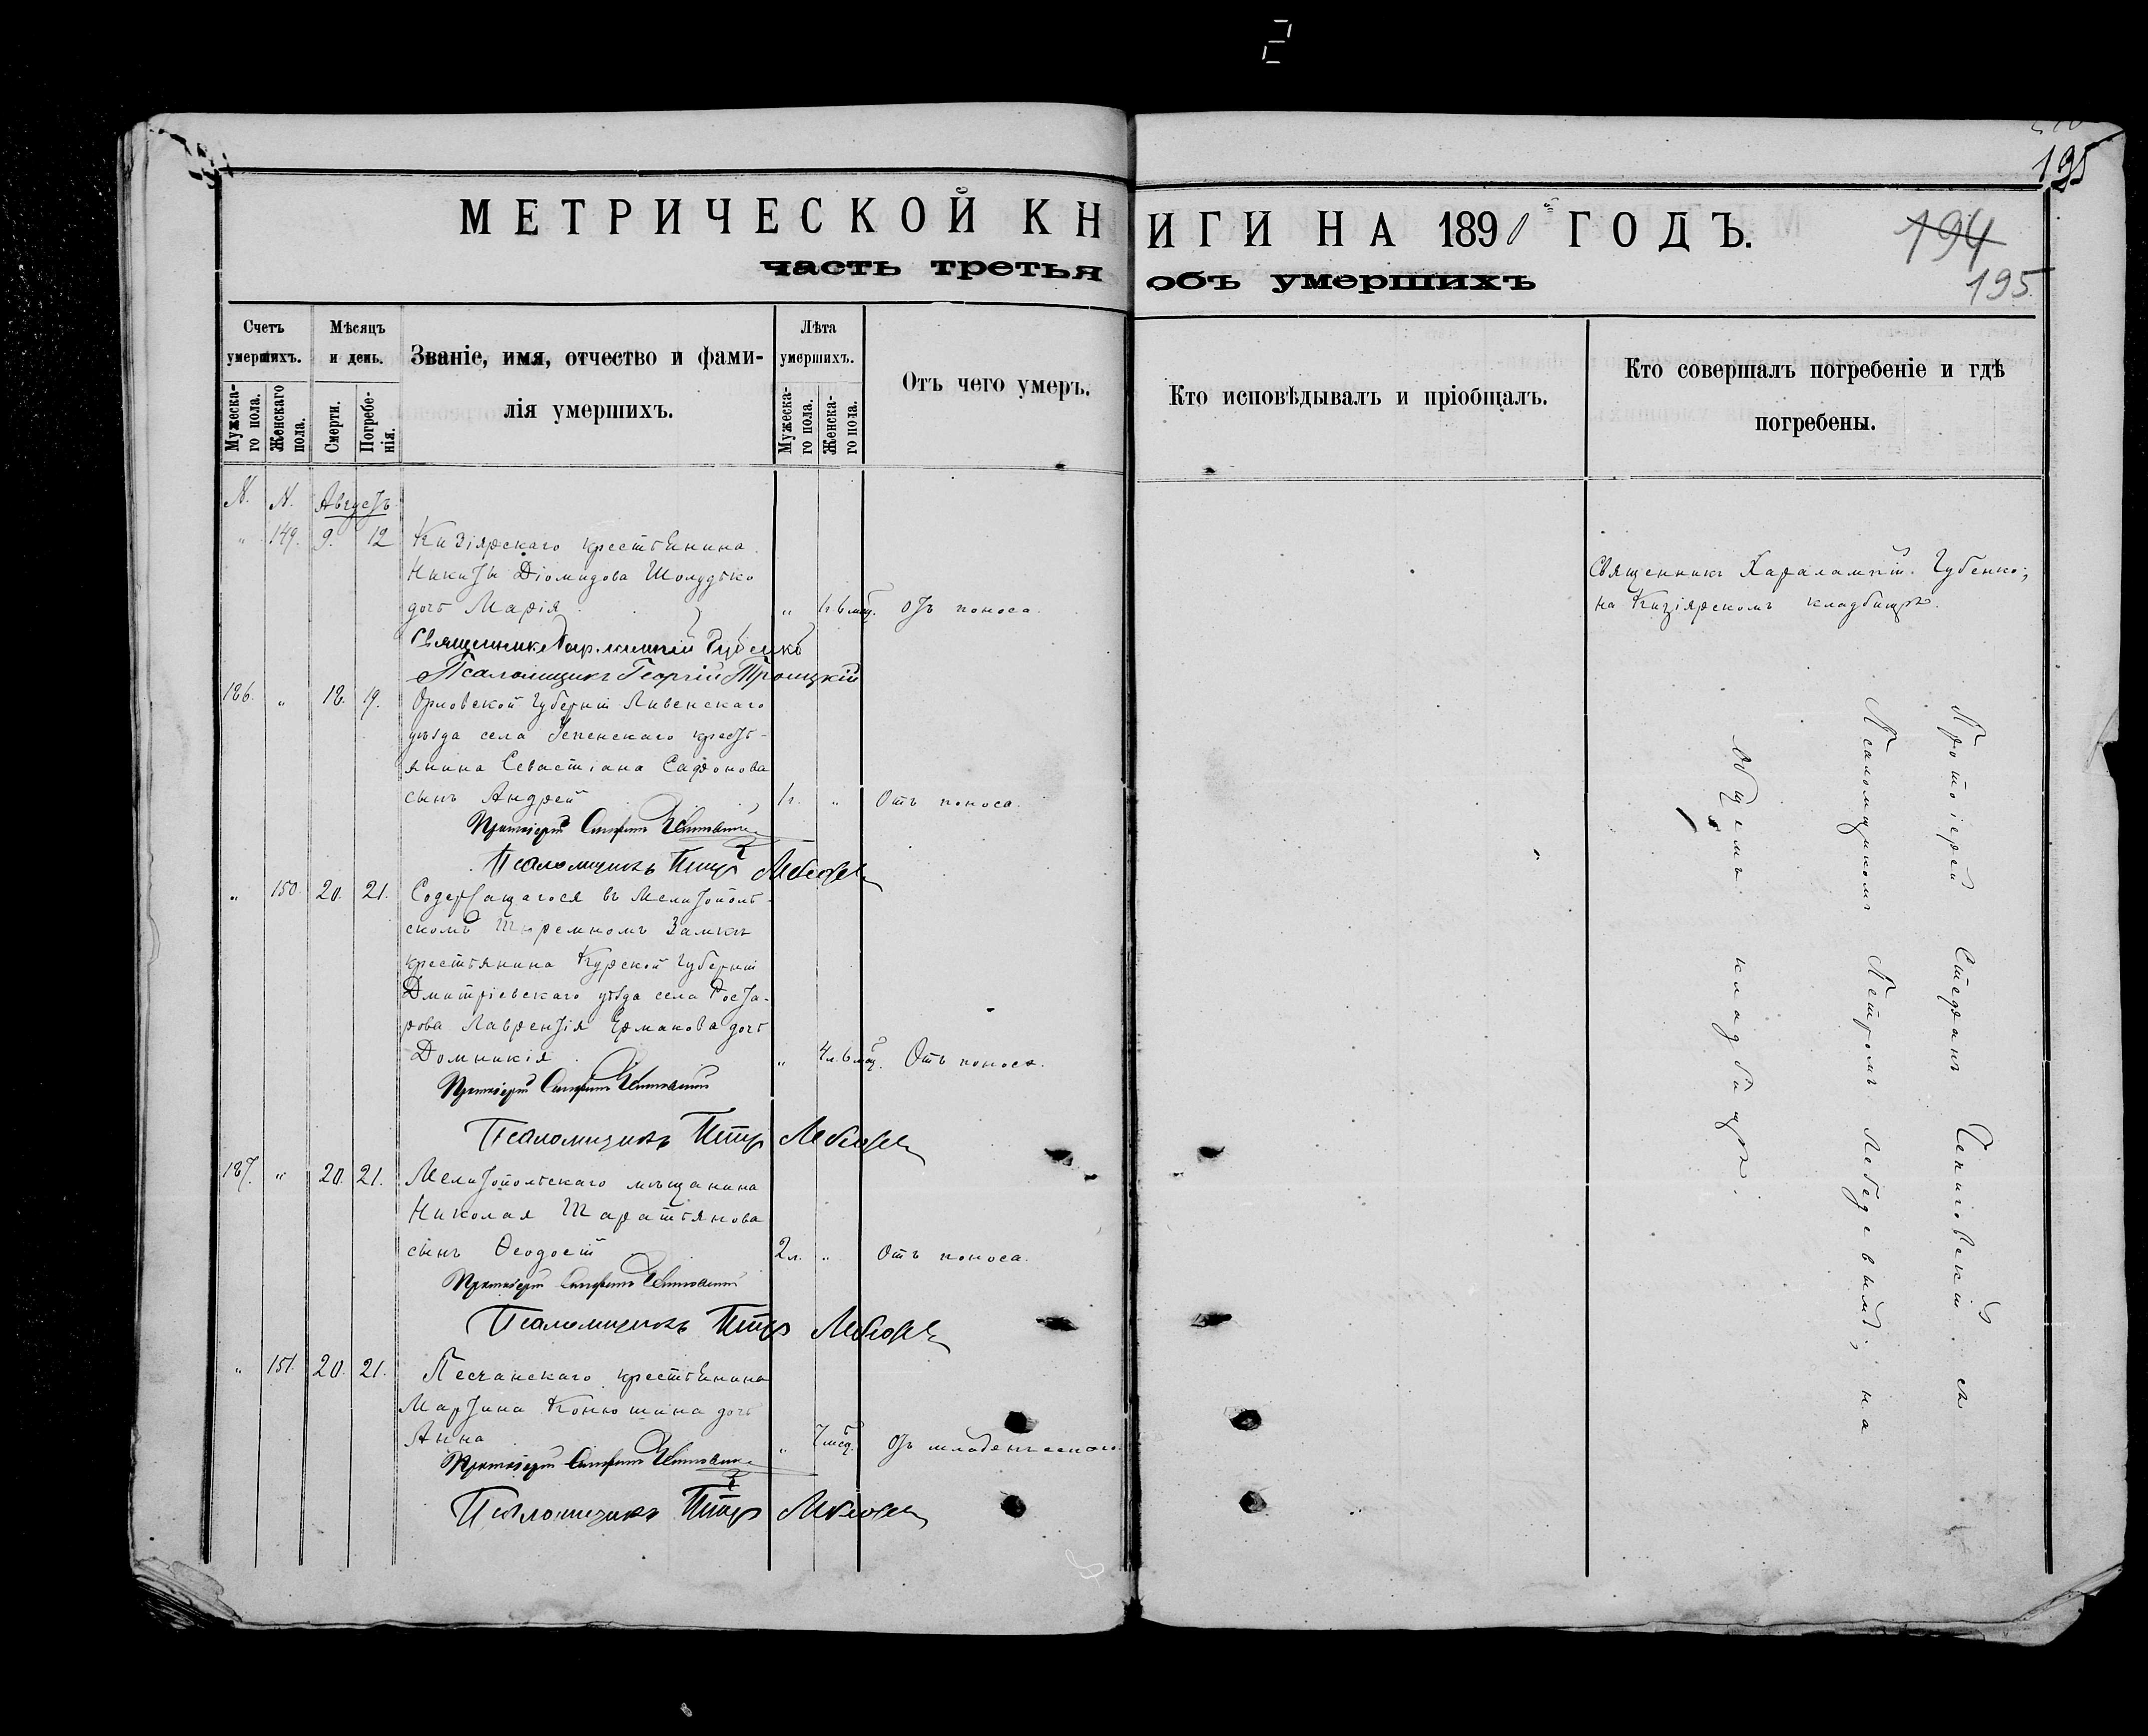 195
МЕТРИЧЕСКОЙ КНИГИ НА 1891 ГОДЪ.
194
часть третья объ умершихъ
195
Счетъ умершихъ.
Мужеска-го пола.
Женскаго пола.
Мѣсяцъ и день.
Смерти.
Погребе-нія.
Званіе, имя, отчество и фами-
лія умершихъ.
Лѣта умершихъ.
Мужеска-го пола.
Женска-го пола.
Отъ чего умеръ.
Кто исповѣдывалъ и пріобщалъ.
Кто совершалъ погребеніе и гдѣ
погребены.
N. N. Августъ
" 149. 9. 12 Кизіярскаго крестьянина
Никиты Діомидова Шолудько
дочь Марія " 1г. 6 мѣс. отъ поноса.
Священникъ Харалампій Губенко;
на Кизіярскомъ кладбищѣ.
Священникъ Харлампій Губенко
Псаломщикъ Георгій Троицкій
186. " 18. 19. Орловской Губерніи Ливенскаго
уѣзда села крестъ-
янина Севастіана Сафонова
сынъ Андрей 1г. " Отъ поноса.
Протоіерей Стефанъ
Псаломщикъ Петръ Лебедевъ
" 150. 20. 21. Содержащагося въ Мелитополь-
скомъ Тюремномъ Замкѣ
крестьянина Курской Губерніи
Дмитріевскаго уѣзда села
Лаврентія Ермакова дочь
Домникія " 4л. 6 мѣс. Отъ поноса.
Протоіерей Стефанъ
Псаломщикъ Петръ Лебедевъ
187. " 20. 21. Мелитопольскаго мѣщанина
Николая
сынъ Ѳеодосій 2л. " Отъ поноса.
Протоіерей Стефанъ
Псаломщикъ Петръ Лебедевъ
" 151. 20. 21. Песчанскаго крестьянина
Мартина Конюшина дочь
Анна " 7 мѣс. Отъ младенческаго
Протоіерей Стефанъ
Псаломщикъ Петръ Лебедевъ
Протоіерей Стефанъ съ
Псаломщикомъ Петромъ Лебедевымъ; на
Общемъ кладбищѣ.